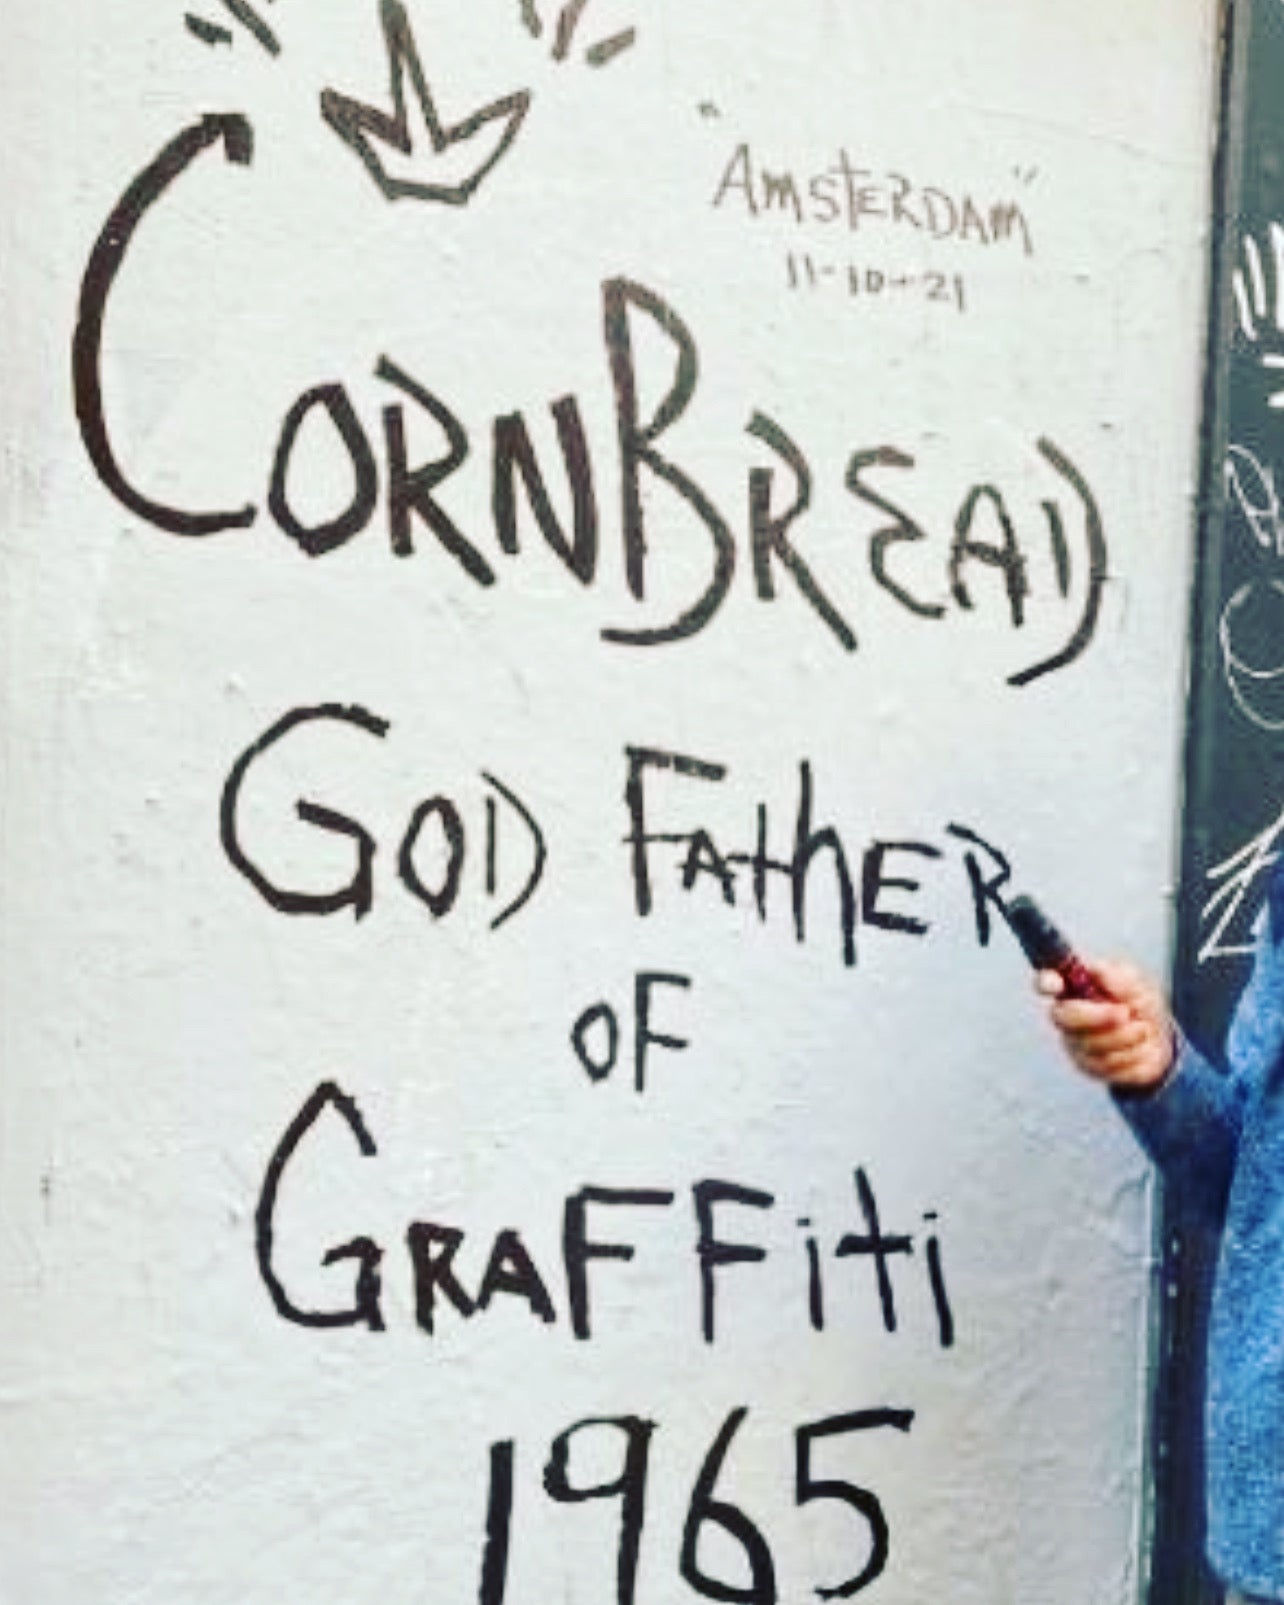 "Amsterdam"
11-10-21
CornBread
God Father
of
Graffiti
1965